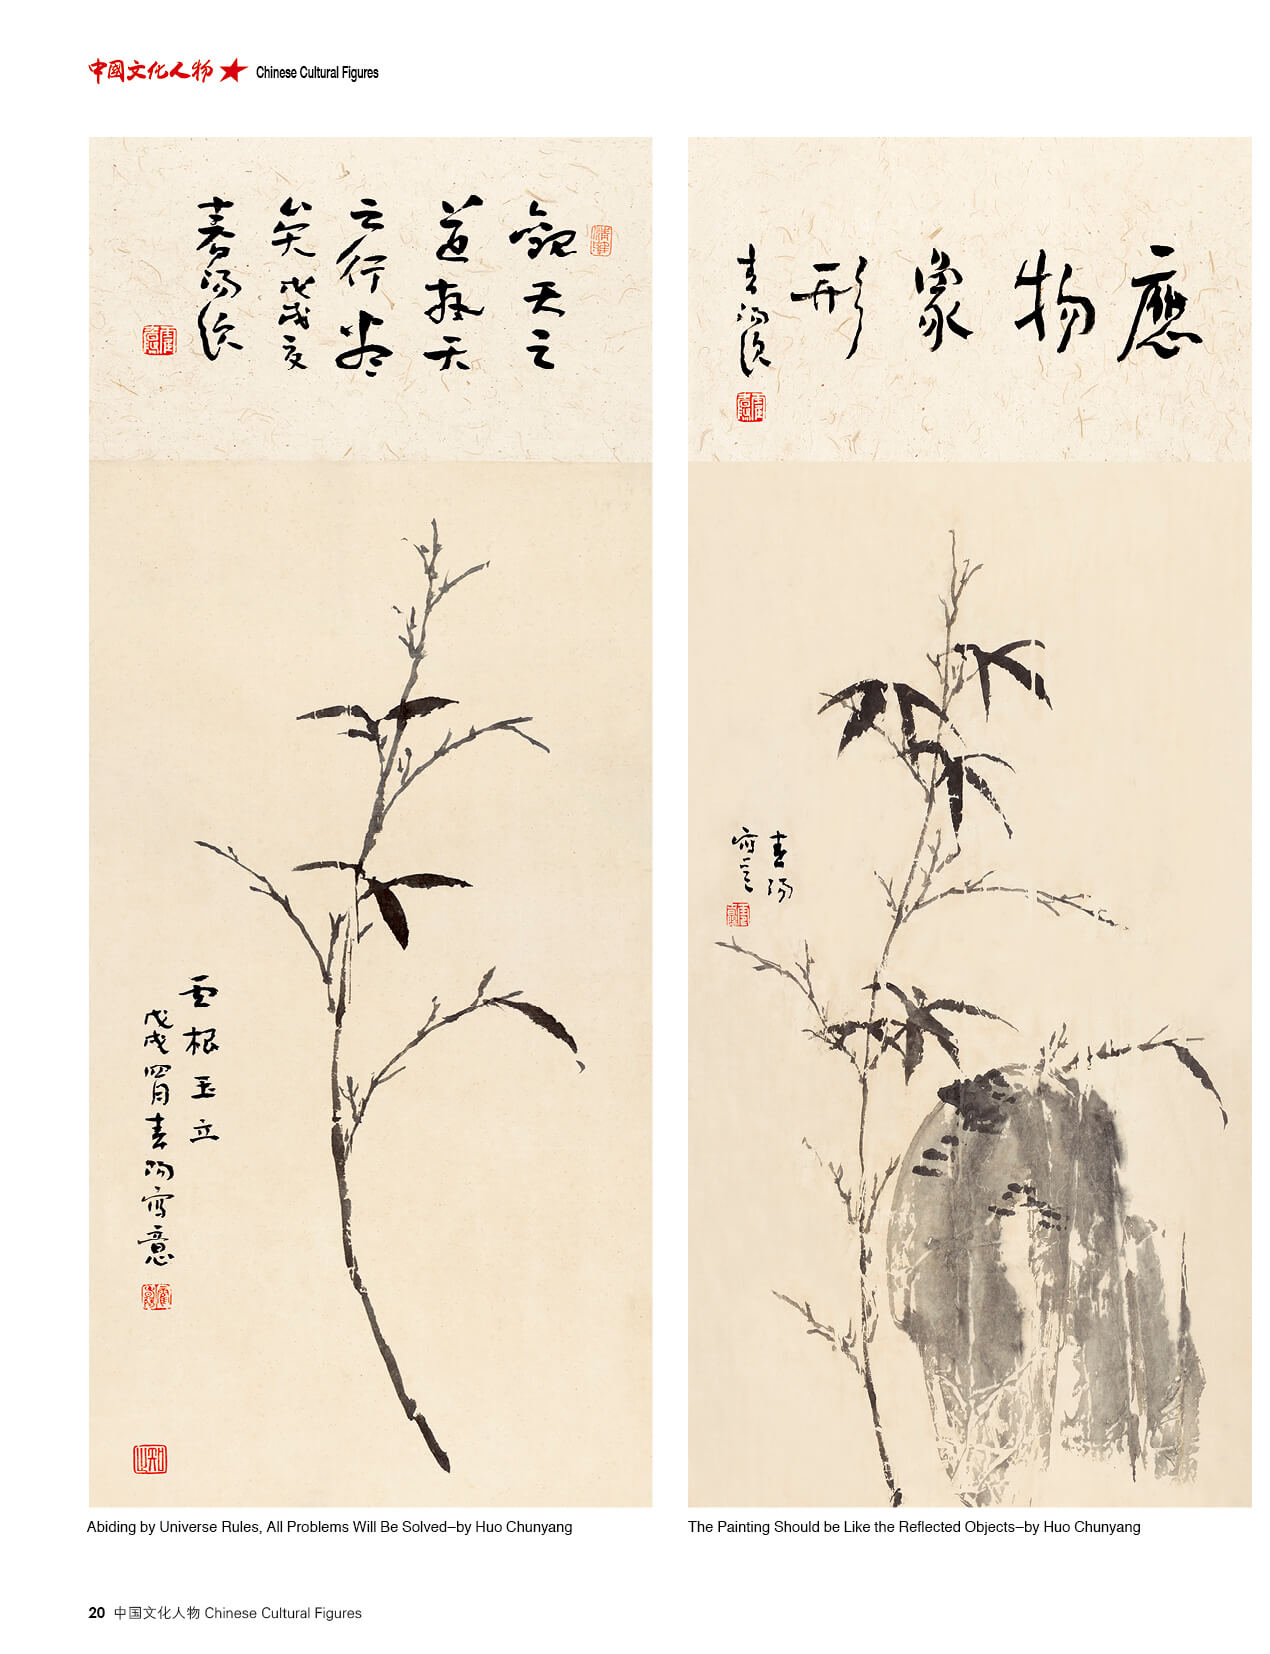 中國文化人物 Chinese Cultural Figures
觀天之
道執天
之行盡
矣戊戌夏
春陽頌
應物象形
春陽頌
雲根玉立
戊戌四月春陽寫意
春陽
寫意
Abiding by Universe Rules, All Problems Will Be Solved—by Huo Chunyang
The Painting Should be Like the Reflected Objects—by Huo Chunyang
20 中国文化人物 Chinese Cultural Figures